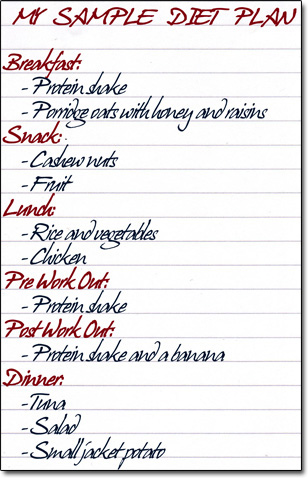 MY SAMPLE DIET PLAN
Breakfast:
- Protein shake
- Porridge oats with honey and raisins
Snack:
- Cashew nuts
- Fruit
Lunch:
- Rice and vegetables
- Chicken
Pre Work Out:
- Protein shake
Post Work Out:
- Protein shake and a banana
Dinner:
- Tuna
- Salad
- Small jacket potato